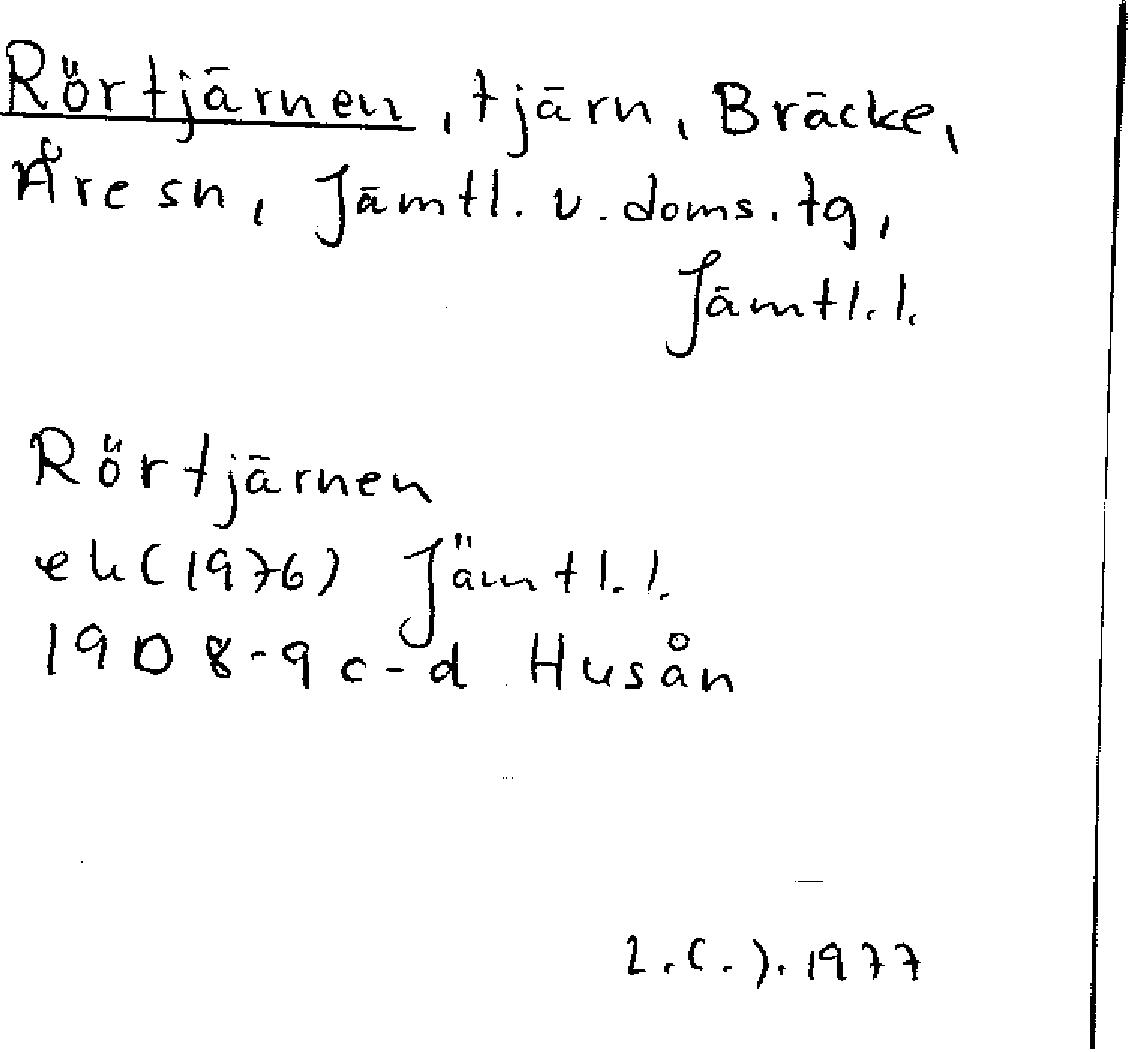 Rörtjärnen, tjärn, Bräcke,
Åre sn, Jämtl. v. doms. tg,
Jämtl. l.
Rörtjärnen
ek (1976) Jämtl. l.
19D 8-9 c-d Husån
1977